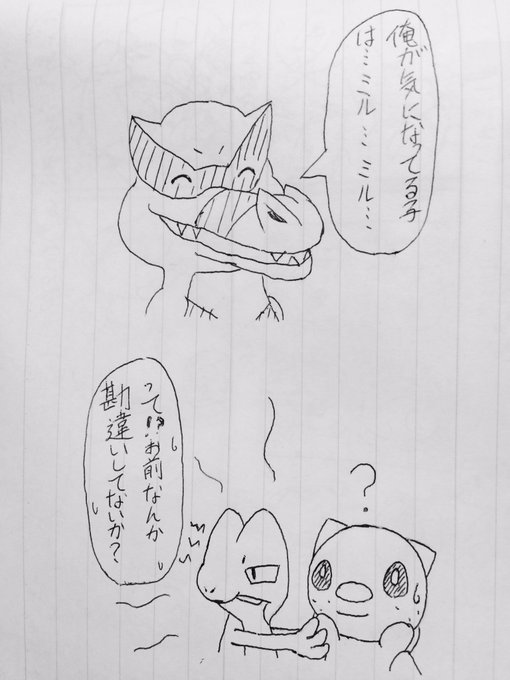 俺が気になってる子
は…ミル…ミル…
?
って!?お前なんか
勘違いしてないか?